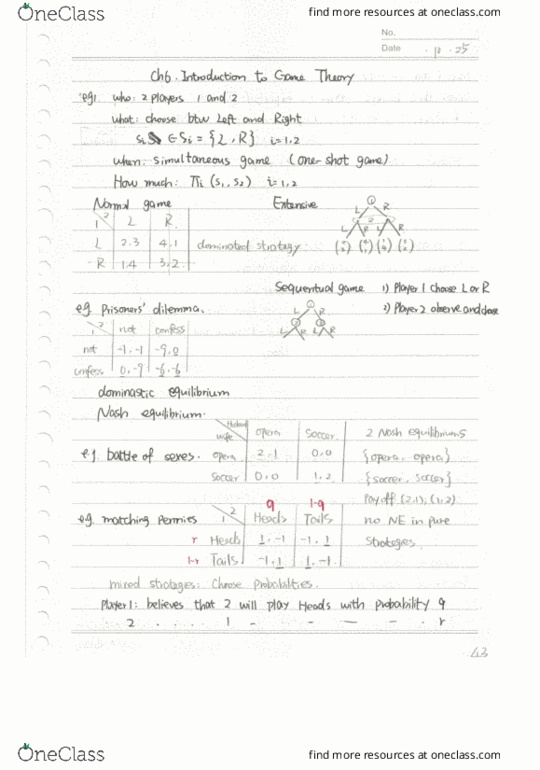 OneClass find more resources at oneclass.com
No.
Date 11.25
Ch6. Introduction to Game Theory
eg1. who: 2 players 1 and 2
what: choose btw Left and Right
Si ∈ Si = {L, R} i=1,2
when: simultaneous game (one-shot game)
How much: Πi (S1, S2) i=1,2
Normal game Extensive
1 2 L R
L 2.3 4.1 dominated strategy
R 1.4 3.2
1
L R
2
L R L R
Sequentual game 1) Player 1 choose L or R
2) Player 2 observe and
eg. Prisoners' dilemma.
1 2 not confess
not -1.-1 -9.0
confess 0.-9 -6.-6
1
L R
2 2
L R L R
dominastic equilibrium
Nash equilibrium.
eg. battle of sexes.
Husband
wife opera Soccer
opera 2.1 0.0
Soccer 0.0 1.2
2 Nash equilibriums
{opera, opera}
{soccer, soccer}
Pay off (2.1), (1.2)
q 1-q
eg. matching Pennies 1 2 Heads Tails no NE in pure
r Heads 1.-1 -1.1 strategies.
1-r Tails -1.1 1.-1
mixed strategies: Choose Probabilities.
Player 1: believes that 2 will play Heads with probability q
2 . . . . 1 - - — - r
43
OneClass find more resources at oneclass.com